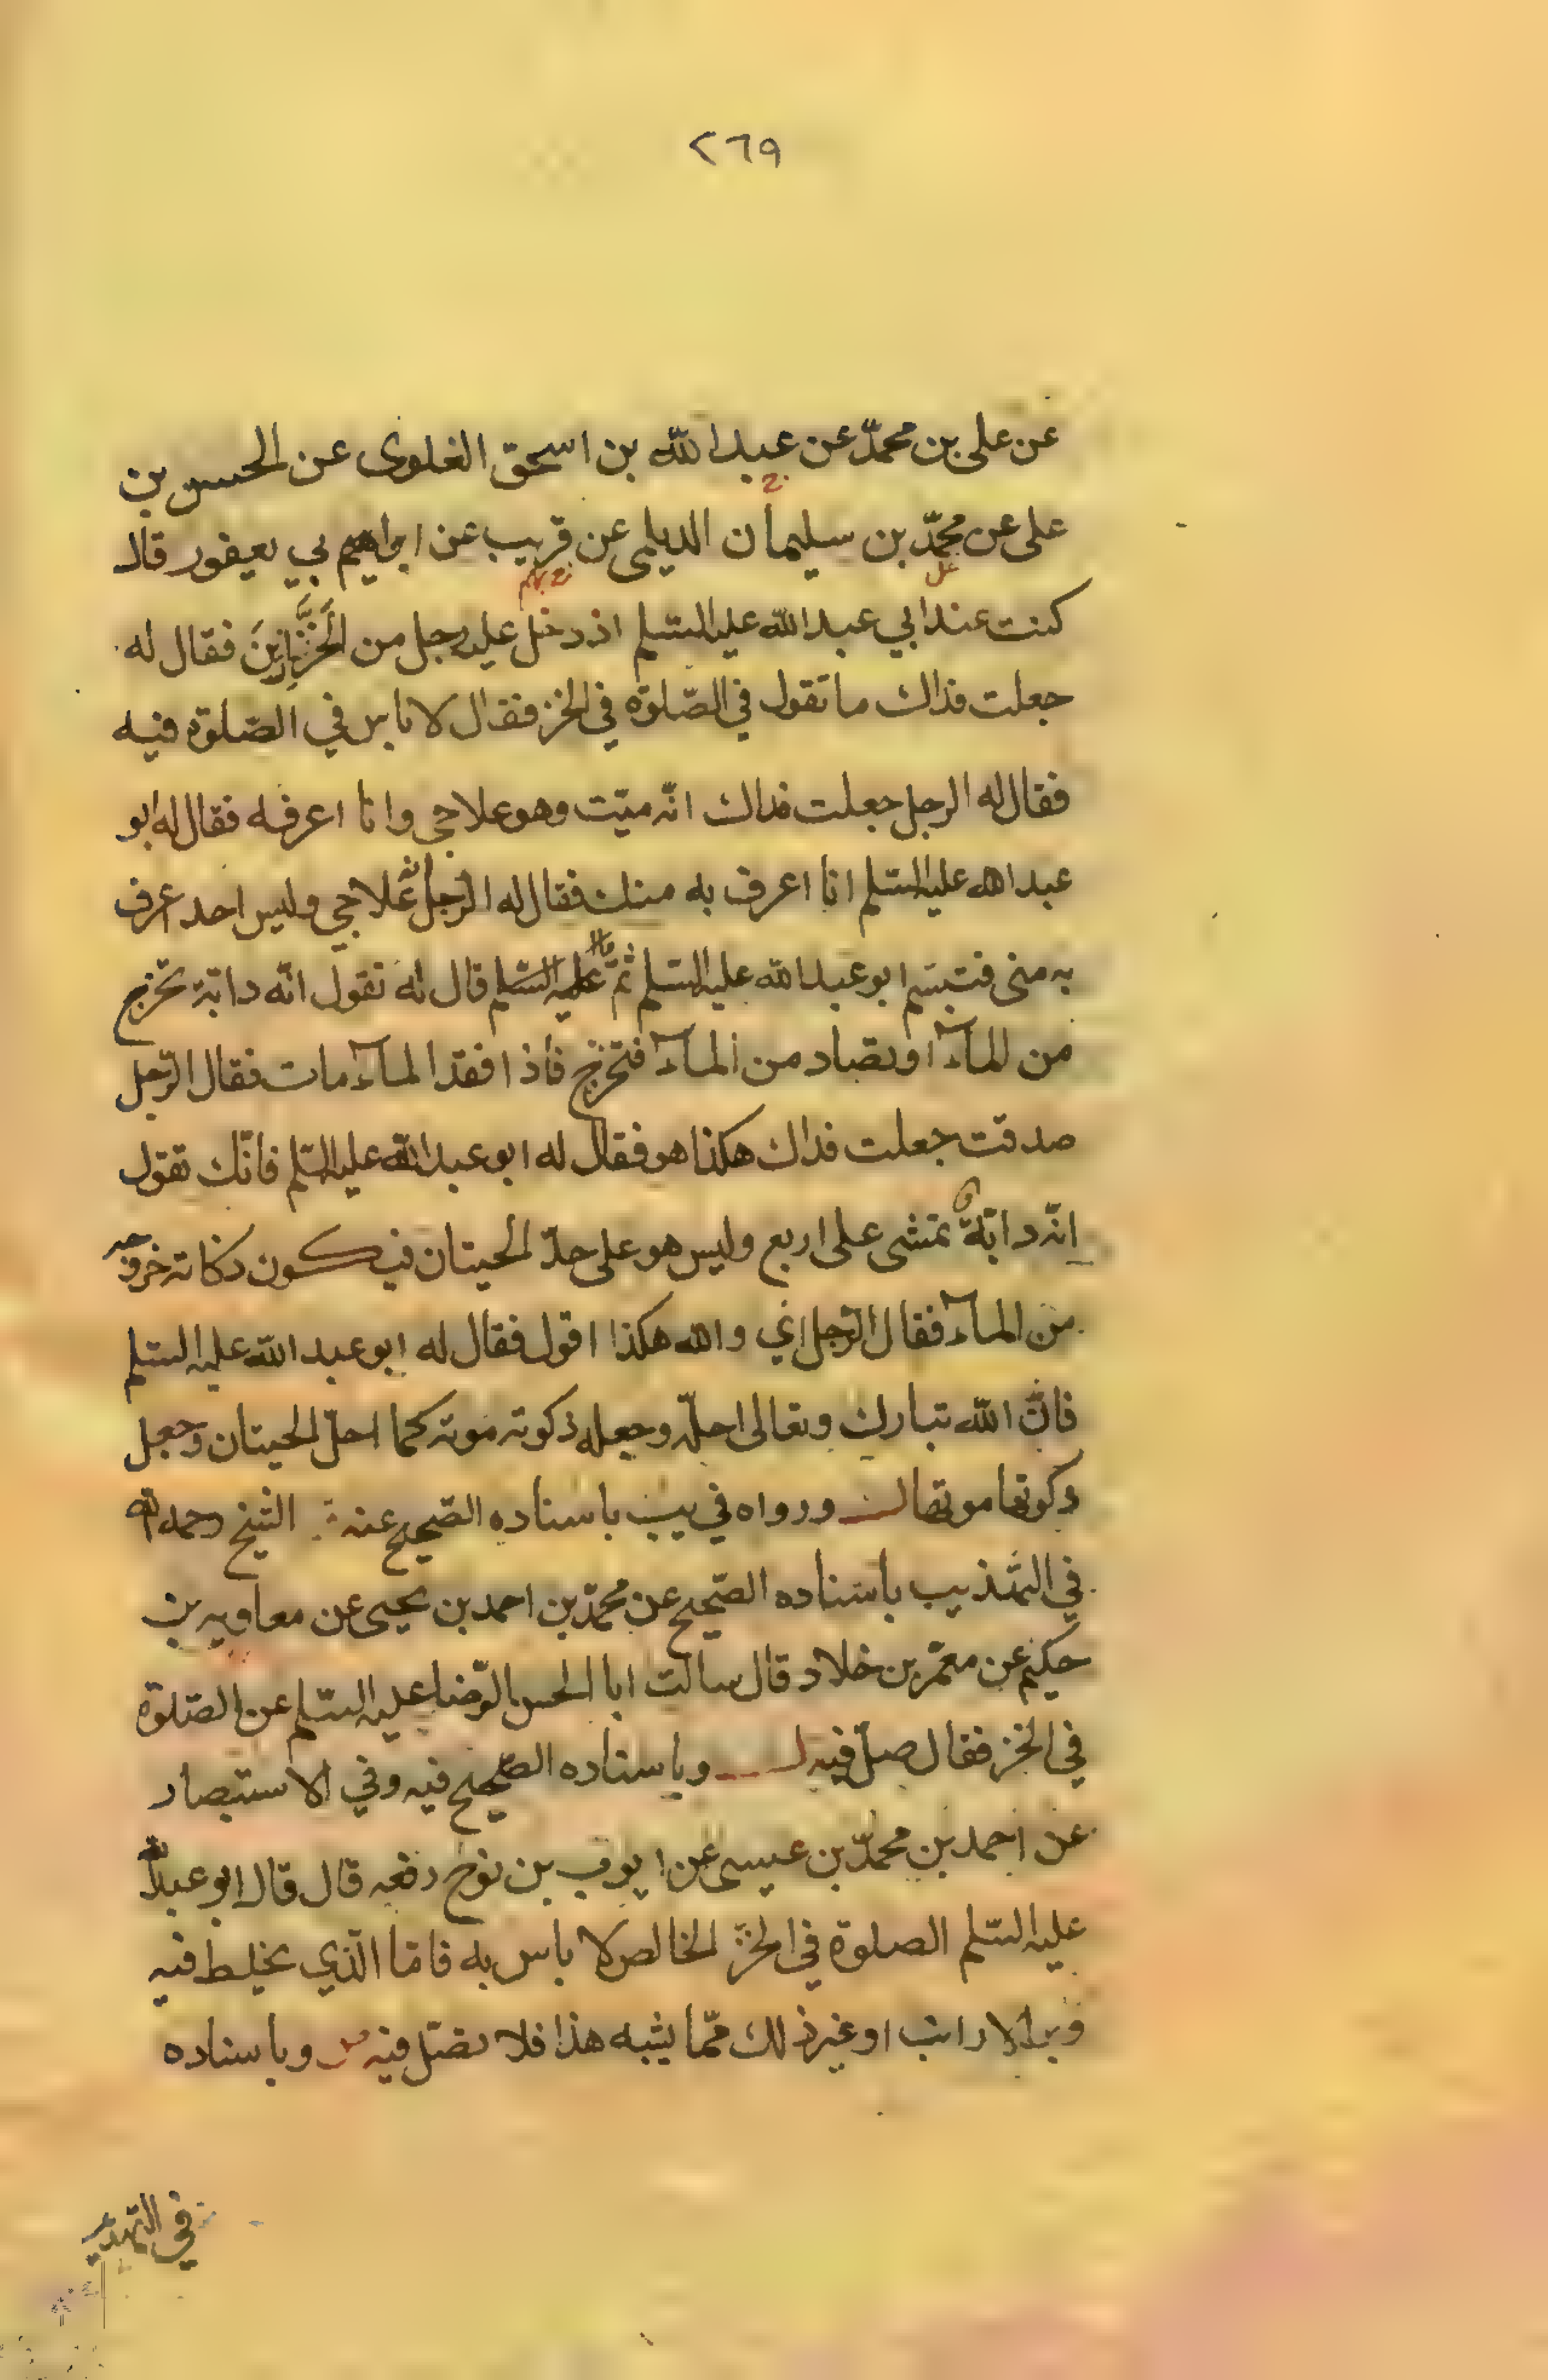 ٢٦٩
عن على بن محمّد عن عبد الله بن اسحق الغلوى عن الحسن بن
على عن محمّد بن سليمان الديلمى عن قريب عن ابراهيم بي يعيفور قال
كنت عند ابي عبد الله عليه السّلم اذ دخل عليه رجل من الخَزَّازِينَ فقال له
جعلت فداك ما تقول في الصّلوة في الخز فقال لا باس في الصّلوة فيه
فقال له الرجل جعلت فداك انّه ميّت وهو علاجي وانا اعرفه فقال له ابو
عبد الله عليه السّلم انا اعرف به منك فقال له الرّجل انّه علاجي وليس احد اعرف
به منى فتبسّم ابو عبد الله عليه السّلم ثمّ عليه السّلم قال له تقول انّه دابّة تخرج
من المآء او تصاد من المآء فتخرج فاذا فقد المآء مات فقال الرّجل
صدقت جعلت فداك هكذا هو فقال له ابو عبد الله عليه السّلم فانّك تقول
انّه دابّة تمشى على اربع وليس هو على حدّ الحيتان فيكون ذكاته خروجه
من المآء فقال الرّجل اي والله هكذا اقول فقال له ابو عبد الله عليه السّلم
فانّ الله تبارك وتعالى احلّه وجعل ذكوته موته كما احلّ الحيتان وجعل
ذكوتها موتها ورواه في يب باسناده الصّحيح عنه الشّيخ رحمه الله
في التهذيب باسناده الصّحيح عن محمّد بن احمد بن يحيى عن معاويه بن
حكيم عن معمّر بن خلاد قال سالت ابا الحسن الرّضا عليه السّلم عن الصّلوة
في الخز فقال صلّ فيه وباسناده الصّحيح فيه وفي الاستبصار
عن احمد بن محمّد بن عيسى عن ايوب بن نوح رفعه قال قال ابو عبد الله
عليه السّلم الصلوة في الخزّ الخالص لا باس به فامّا الّذي يخلط فيه
وبر الارانب او غير ذلك ممّا يشبه هذا فلا تصلّ فيه وباسناده
في التهذيب